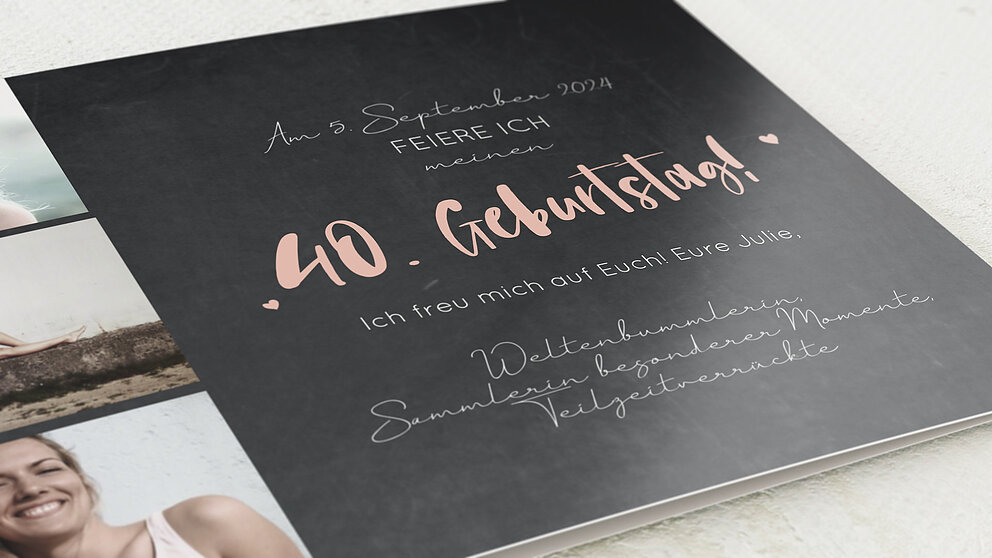 Am 5. September 2024
FEIERE ICH
meinen
40. Geburtstag!
Ich freu mich auf Euch! Eure Julie,
Weltenbummlerin,
Sammlerin besonderer Momente,
Teilzeitverrückte